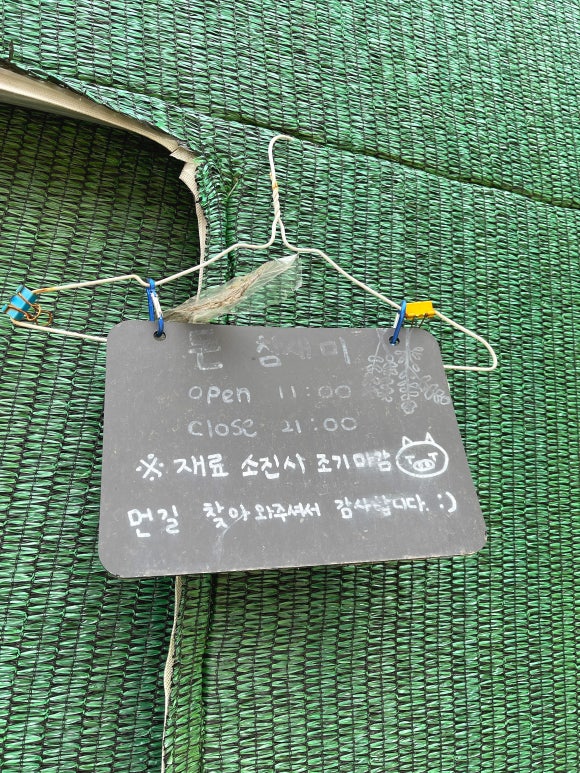 open 11:00
close 21:00
※ 재료 소진시 조기마감
먼길 찾아와주셔서 감사합니다. :)